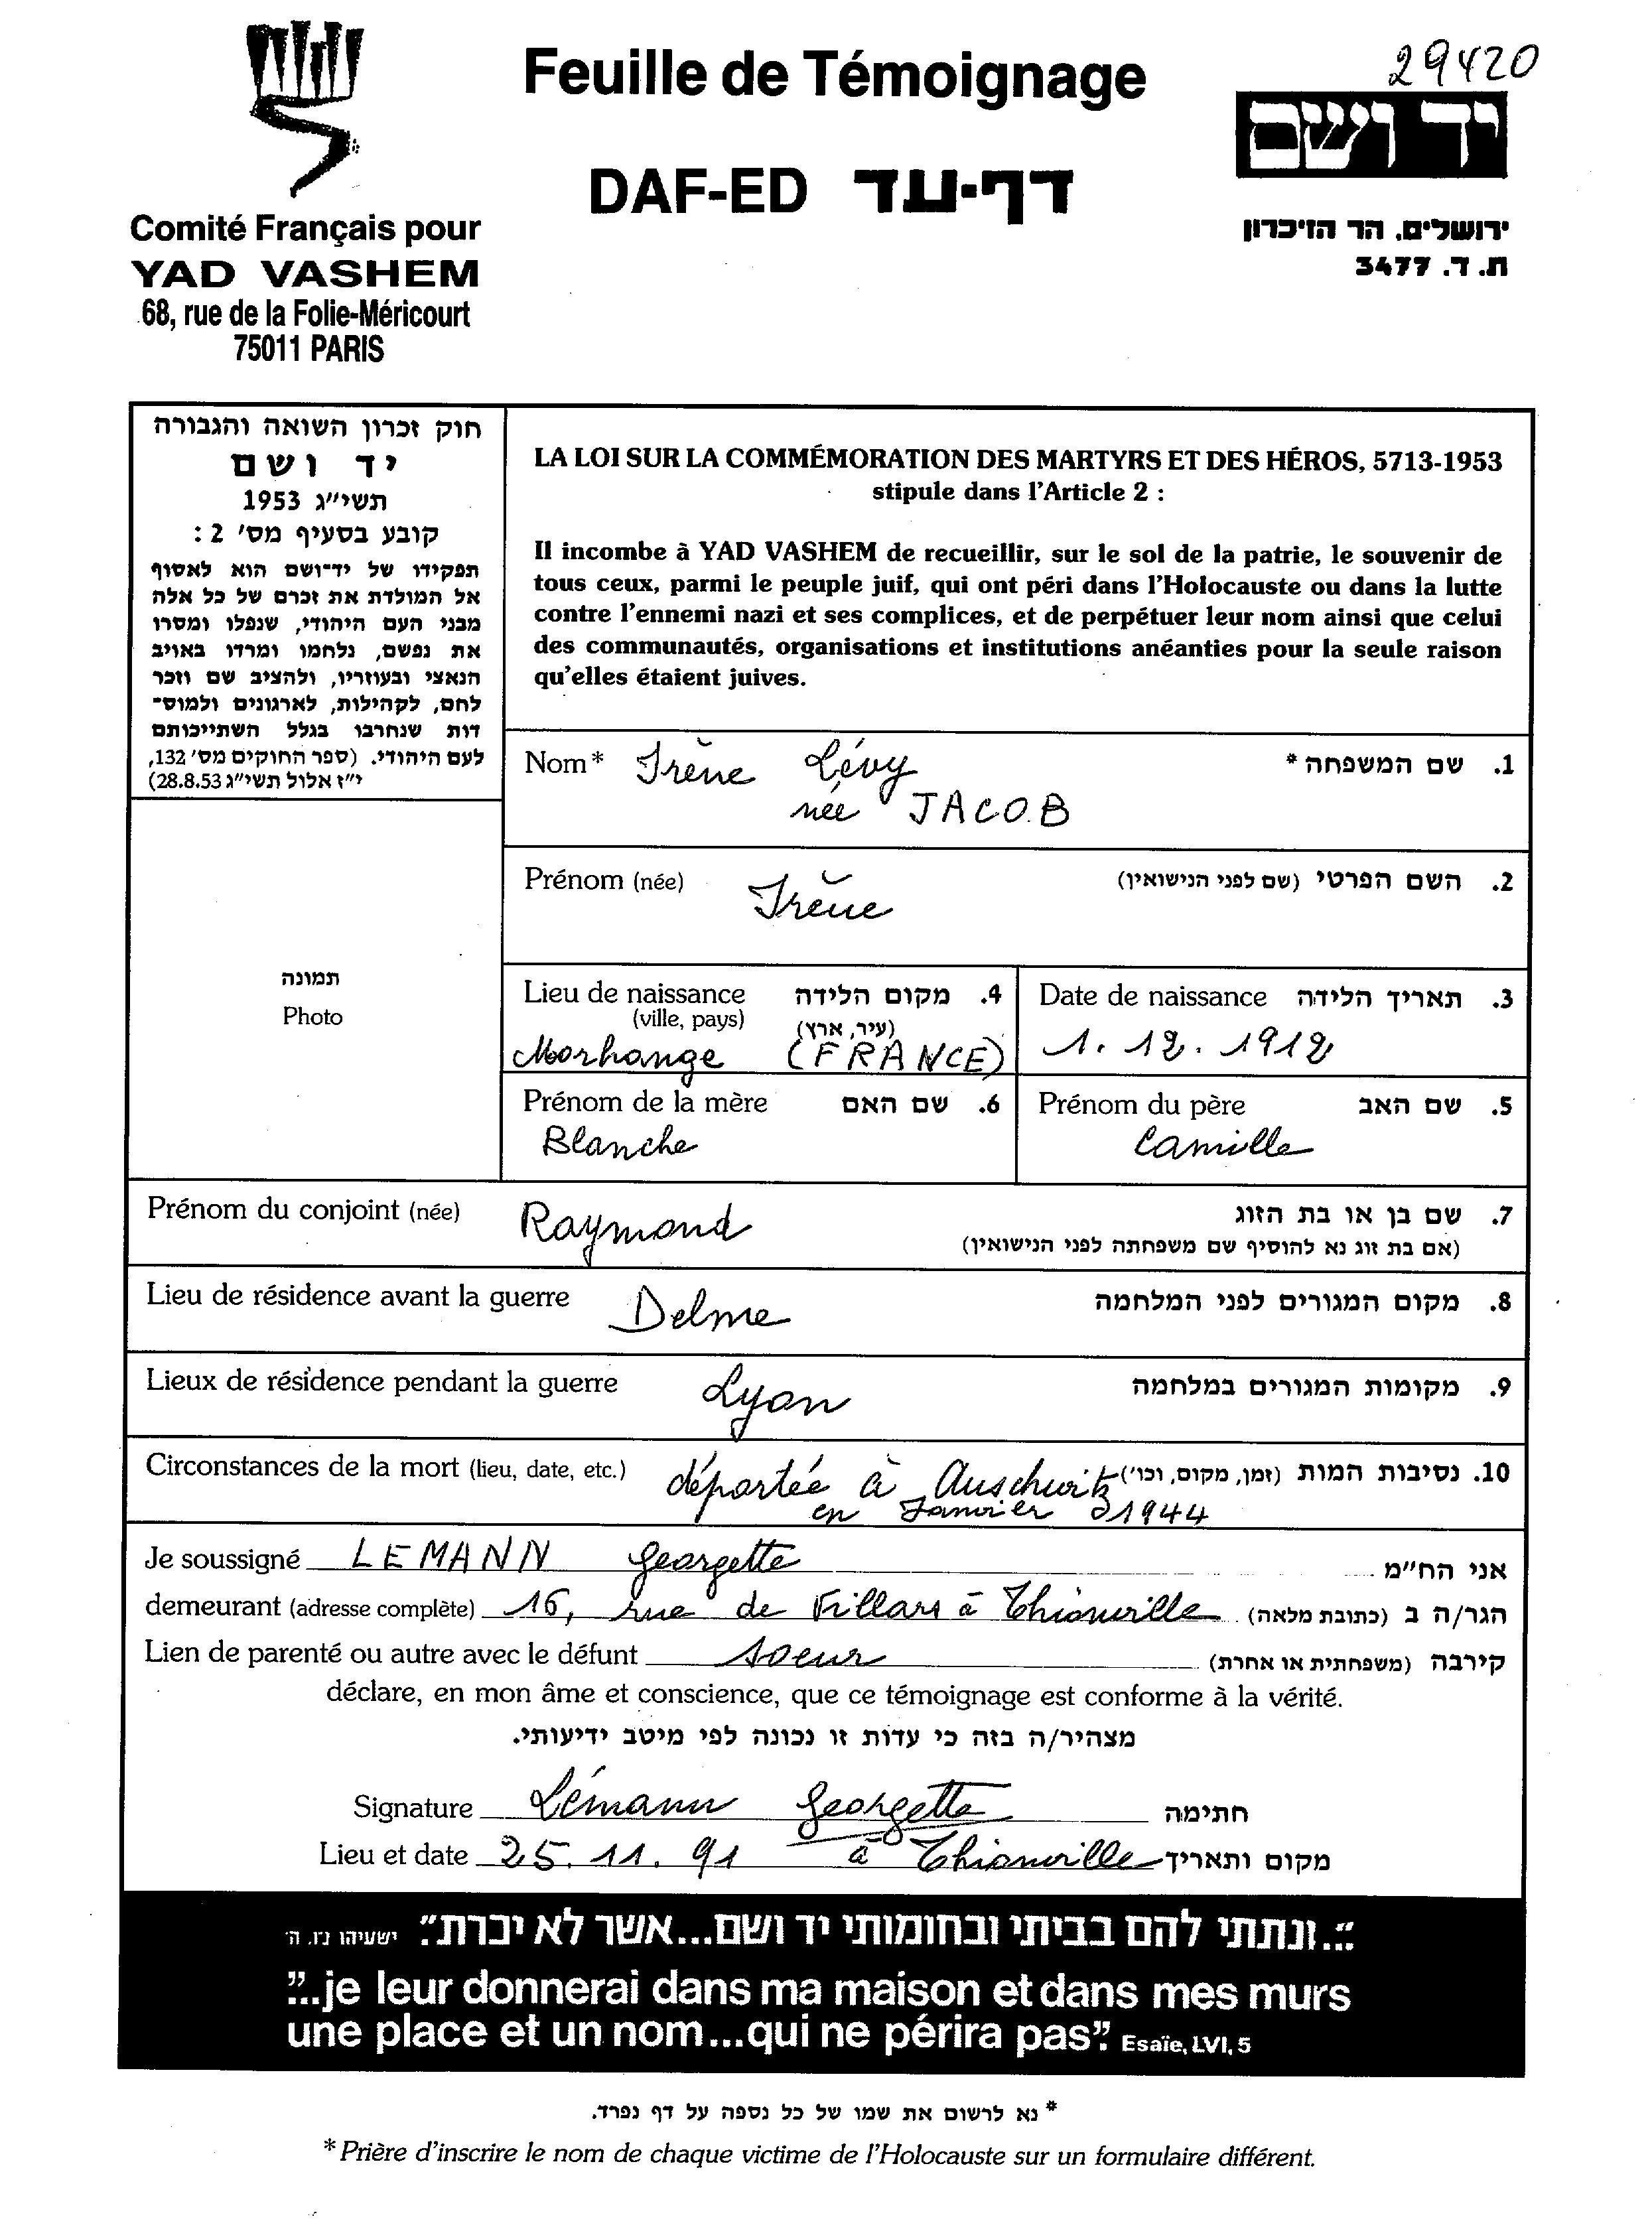 Feuille de Témoignage
29420
יד ושם
DAF-ED דף-עד
Comité Français pour
YAD VASHEM
68, rue de la Folie-Méricourt
75011 PARIS
ירושלים, הר הזיכרון
ת. ד. 3477
חוק זכרון השואה והגבורה
יד ושם
תשי״ג 1953
קובע בסעיף מס׳ 2 :
תפקידו של יד־ושם הוא לאסוף
אל המולדת את זכרם של כל אלה
מבני העם היהודי, שנפלו ומסרו
את נפשם, נלחמו ומרדו באויב
הנאצי ובעוזריו, ולהציב שם וזכר
לחם, לקהילות, לארגונים ולמוס־
דות שנחרבו בגלל השתייכותם
לעם היהודי. (ספר החוקים מס׳ 132,
י״ז אלול תשי״ג 28.8.53)
LA LOI SUR LA COMMÉMORATION DES MARTYRS ET DES HÉROS, 5713-1953
stipule dans l'Article 2 :
Il incombe à YAD VASHEM de recueillir, sur le sol de la patrie, le souvenir de
tous ceux, parmi le peuple juif, qui ont péri dans l'Holocauste ou dans la lutte
contre l'ennemi nazi et ses complices, et de perpétuer leur nom ainsi que celui
des communautés, organisations et institutions anéanties pour la seule raison
qu'elles étaient juives.
Nom* Irène Lévy 1. שם המשפחה *
née JACOB
Prénom (née) Irène 2. השם הפרטי (שם לפני הנישואין)
תמונה
Photo
Lieu de naissance 4. מקום הלידה
(ville, pays) (עיר, ארץ)
Morhange (FRANCE)
Date de naissance 3. תאריך הלידה
1. 12. 1912
Prénom de la mère 6. שם האם
Blanche
Prénom du père 5. שם האב
Camille
Prénom du conjoint (née) Raymond 7. שם בן או בת הזוג
(אם בת זוג נא להוסיף שם משפחתה לפני הנישואין)
Lieu de résidence avant la guerre Delme 8. מקום המגורים לפני המלחמה
Lieux de résidence pendant la guerre Lyon 9. מקומות המגורים במלחמה
Circonstances de la mort (lieu, date, etc.) déportée à Auschwitz 10. נסיבות המות (זמן, מקום, וכו׳)
en Janvier 1944
Je soussigné LEMANN Georgette אני הח״מ
demeurant (adresse complète) 16, rue de Villars à Thionville הגר/ה ב (כתובת מלאה)
Lien de parenté ou autre avec le défunt soeur קירבה (משפחתית או אחרת)
déclare, en mon âme et conscience, que ce témoignage est conforme à la vérité.
מצהיר/ה בזה כי עדות זו נכונה לפי מיטב ידיעותי.
Signature Lémann Georgette חתימה
Lieu et date 25. 11. 91 à Thionville מקום ותאריך
"...ונתתי להם בביתי ובחומותי יד ושם...אשר לא יכרת". ישעיהו נו, ה
"...je leur donnerai dans ma maison et dans mes murs
une place et un nom...qui ne périra pas". Esaïe, LVI, 5
* נא לרשום את שמו של כל נספה על דף נפרד.
* Prière d'inscrire le nom de chaque victime de l'Holocauste sur un formulaire différent.